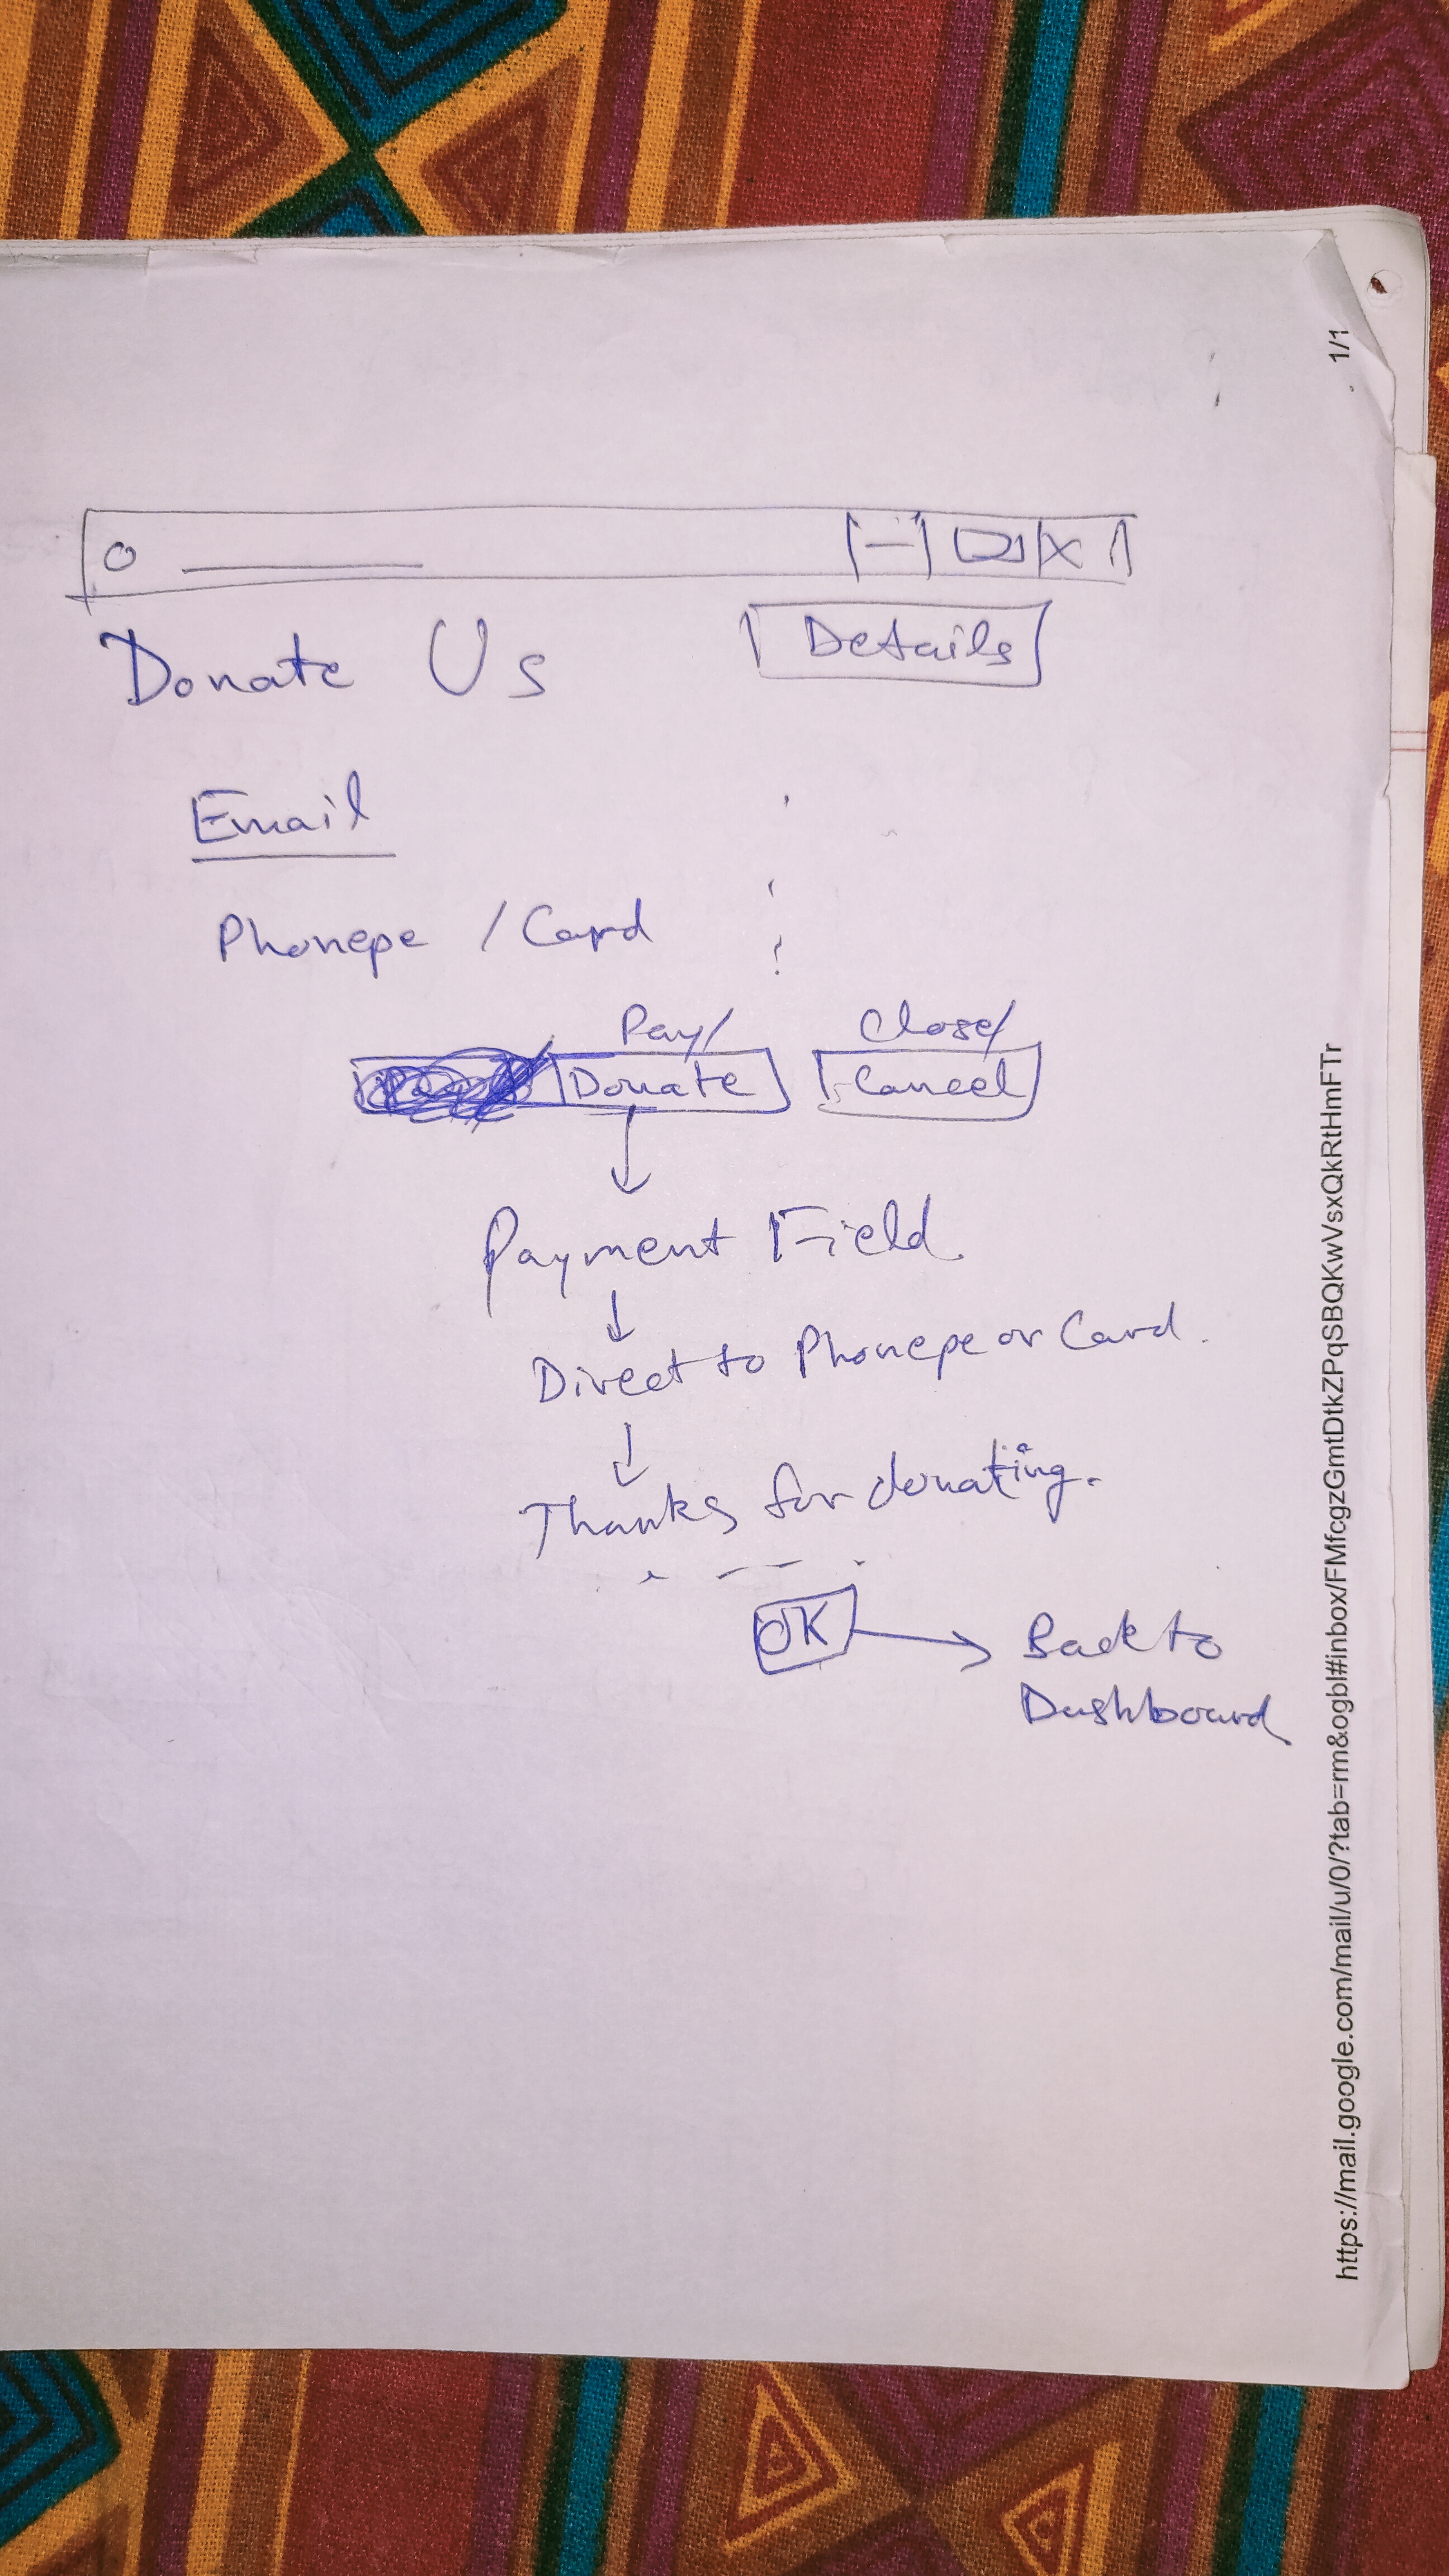 Donate Us
Details
Email
Phonepe / Card
Pay/
Close/
Donate
Cancel
Payment Field
Direct to Phonepe or Card.
Thanks for donating.
OK
Back to
Dashboard
1/1
https://mail.google.com/mail/u/0/?tab=rm&ogbl#inbox/FMfcgzGmtDtkZPqSBQKwVsxQkRtHmFTr